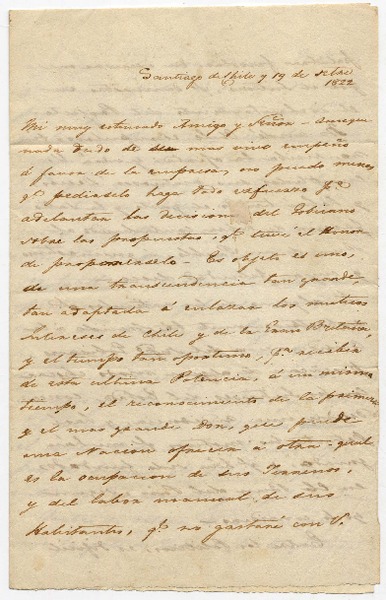 Santiago de Chile y 19 de
1822
Mi muy estimado Amigo y Señor - aunque
nada dudo de su mas vivo empeño
á favor de la empresa, no puedo menos
qe pedirselo haga todo esfuerzo pa
adelantar las decision del Gobierno
sobre las propuestas, qe tuve el Honor
de proponerselo - Es objeto es uno,
de una transcendencia tan grande,
tan adaptada á enlazar los mutuos
Intereses de Chile y de la Gran Bretaña,
y el tiempo tan oportuno, pa recibir
de esta ultima Potencia, á un mismo
tiempo, el reconocimiento de la primera
y el mas grande Don, que puede
una Nacion ofrecer á otra igual
es la ocupacion de sus Terrenos,
y del labor manual de sus
Habitantes, qe no gastaré con V.